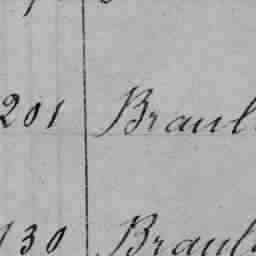 201 Braul
130 Braul